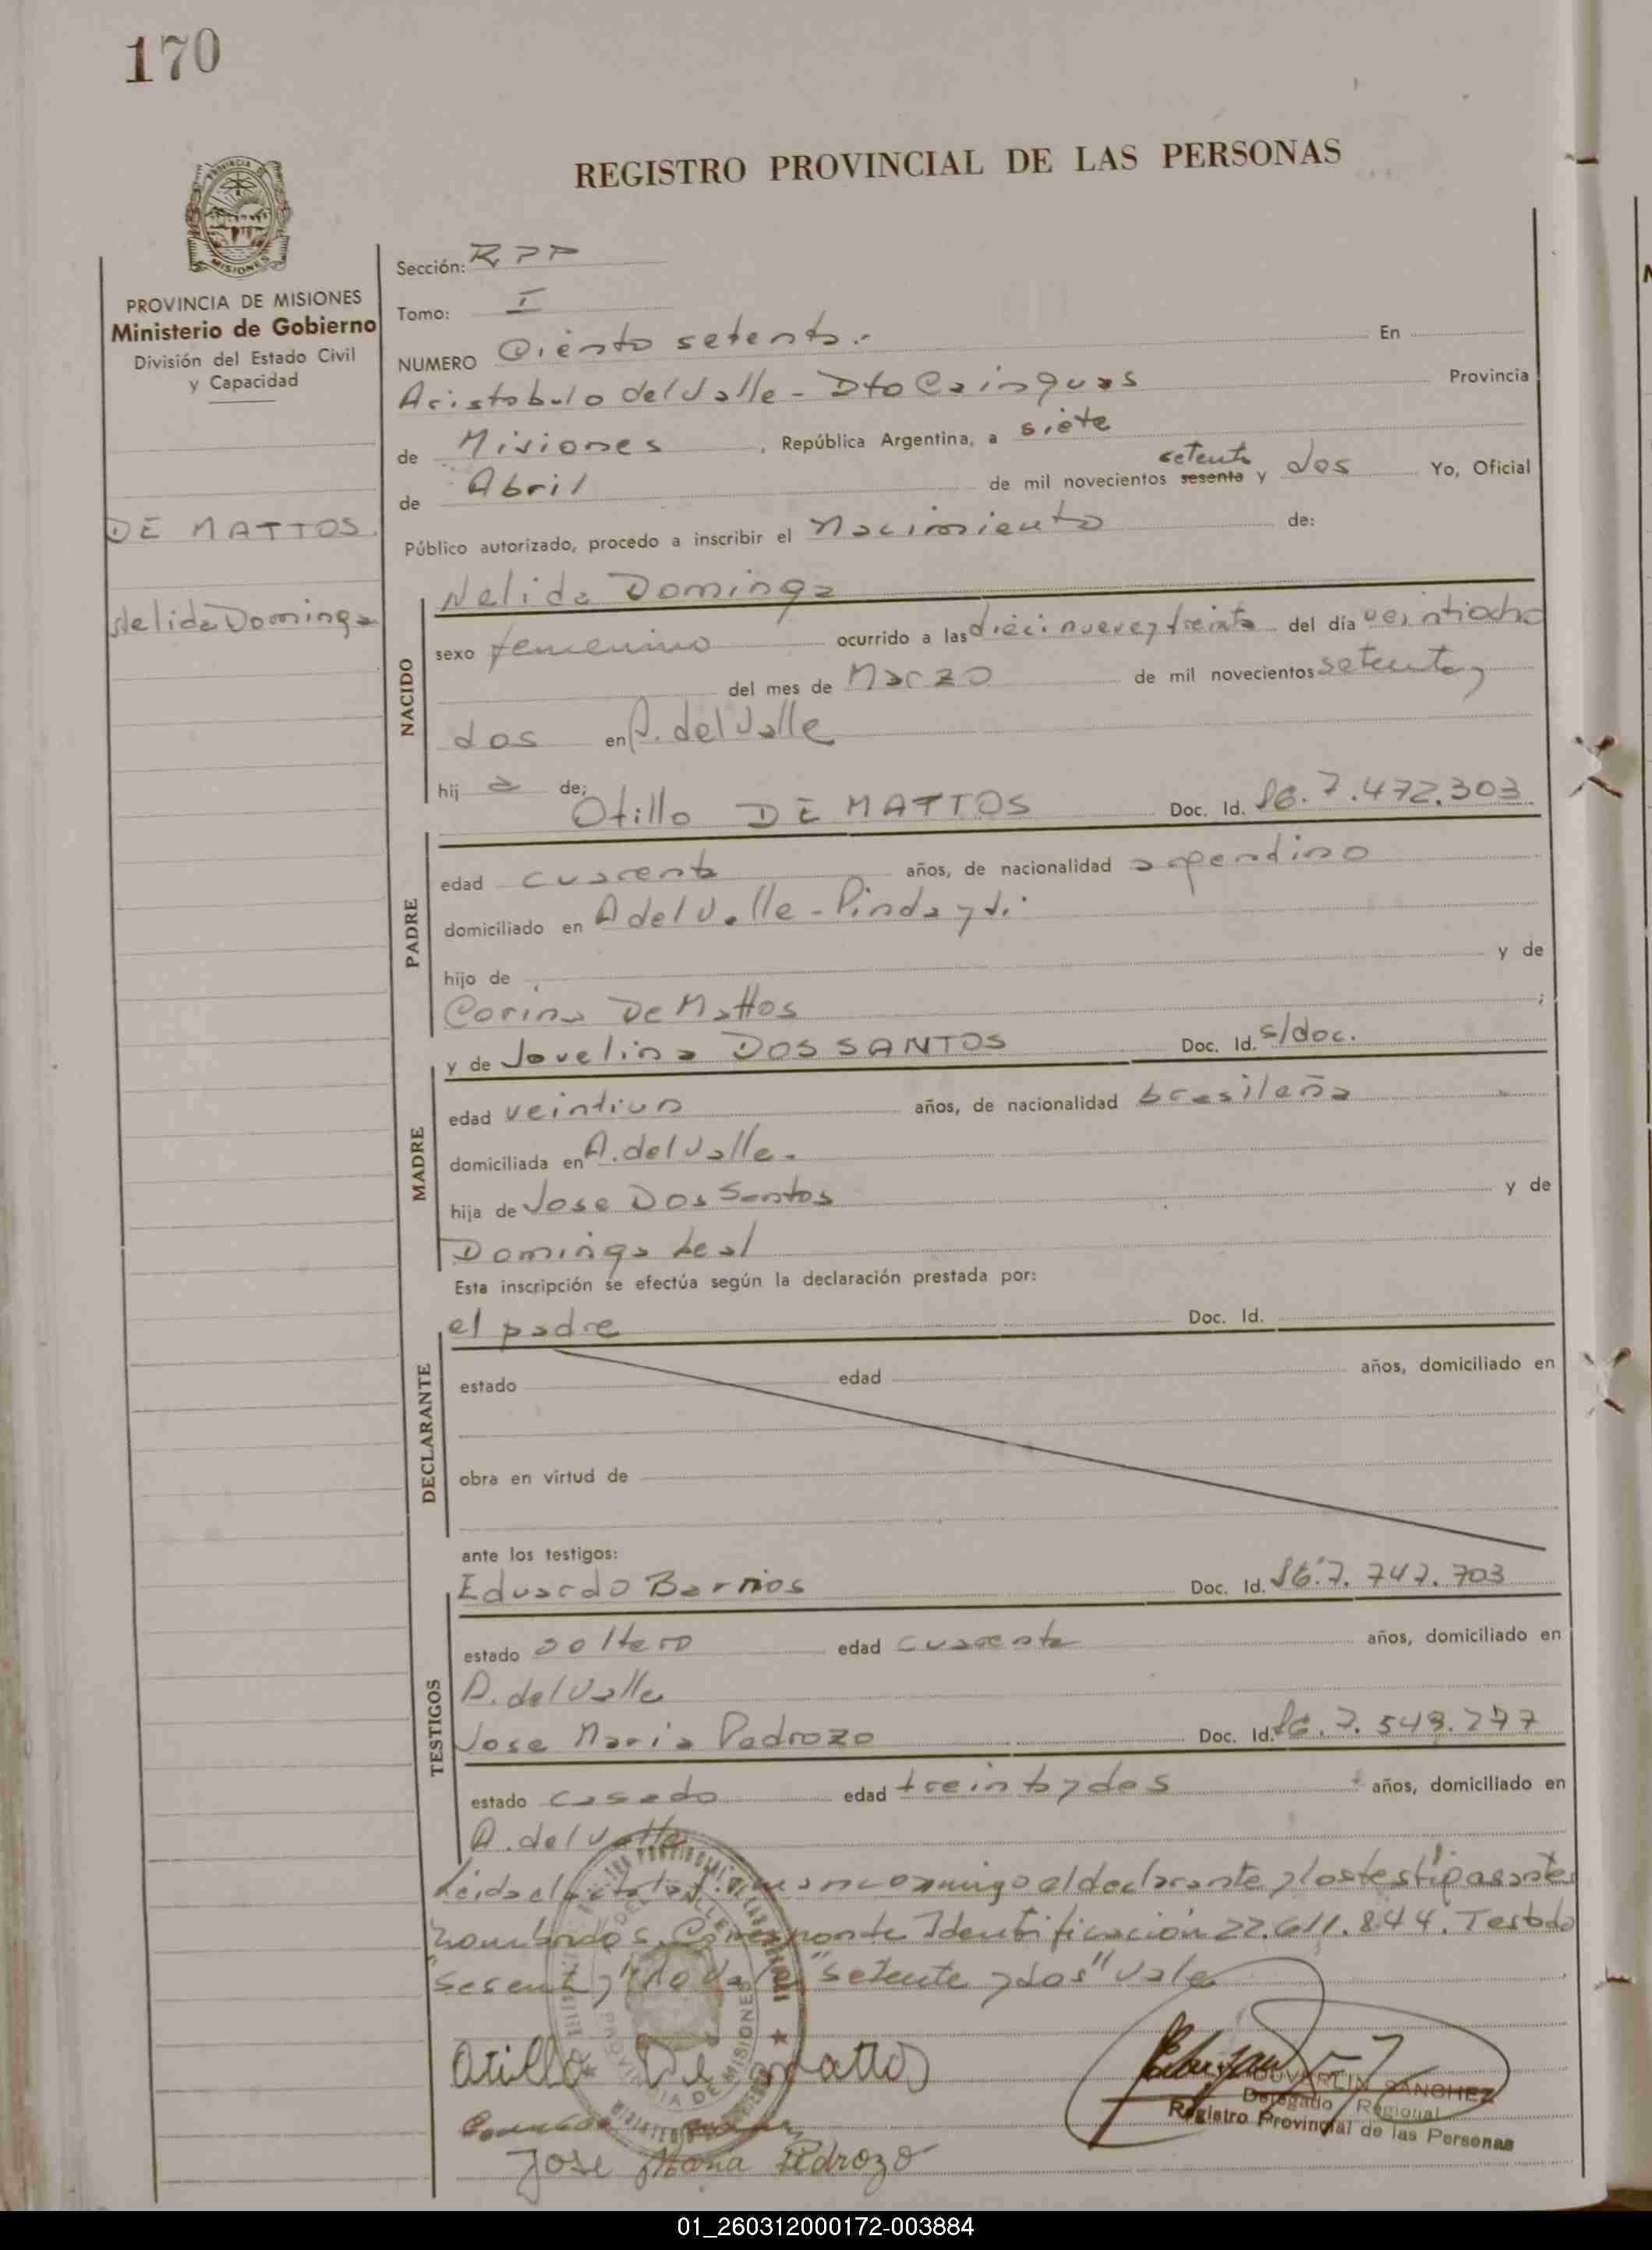 170
REGISTRO PROVINCIAL DE LAS PERSONAS
MISIONES
PROVINCIA DE MISIONES
Ministerio de Gobierno
División del Estado Civil
y Capacidad
DE MATTOS.
Nelida Dominga
Sección: RPP
Tomo: I
NUMERO Ciento setenta.- En
Aristobulo del Valle - Dto Cainguas Provincia
de Misiones, República Argentina, a siete
de Abril de mil novecientos sesenta setenta y dos Yo, Oficial
Público autorizado, procedo a inscribir el Nacimiento de:
NACIDO
Nelida Dominga
sexo femenino ocurrido a las diecinueve y treinta del día veintiocho
del mes de Marzo de mil novecientos setenta y
dos en A. del Valle
hij a de;
PADRE
Otillo DE MATTOS Doc. Id. 7.472.303
edad cuarenta años, de nacionalidad argentino
domiciliado en A del Valle - Pindayti
hijo de y de
Corina De Mattos ;
MADRE
y de Jovelina DOS SANTOS Doc. Id. s/doc.
edad veintiun años, de nacionalidad brasileña
domiciliada en A. del Valle.
hija de Jose Dos Santos y de
Dominga Leal
Esta inscripción se efectúa según la declaración prestada por:
DECLARANTE
el padre Doc. Id.
estado edad años, domiciliado en
obra en virtud de
ante los testigos:
TESTIGOS
Eduardo Barrios Doc. Id. 7.747.703
estado soltero edad cuarenta años, domiciliado en
A. del Valle
Jose Maria Pedrozo Doc. Id. 7.549.
estado casado edad treinta y dos años, domiciliado en
A. del Valle
Leida el acta conmigo el declarante y los testigos antes
nombrados. Corresponde Identificación 22.611.844. Testado
"sesenta y" no vale "setente y dos" vale
Otillo De mattos
Jose Maria Pedrozo
DUVERLIN SANCHEZ
Delegado Regional
Registro Provincial de las Personas
01_260312000172-003884